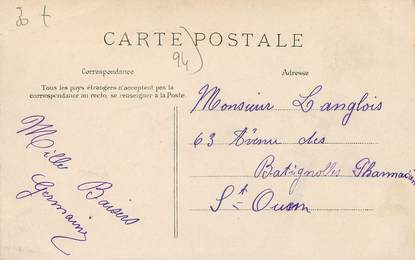 94)
CARTE POSTALE
Correspondance
Tous les pays étrangers n'acceptent pas la
correspondance au recto, se renseigner à la Poste
Mille Baisers
Germaine
Adresse
Monsieur Langlois
63 Avenue des
Batignolles Pharmacien
St Ouen